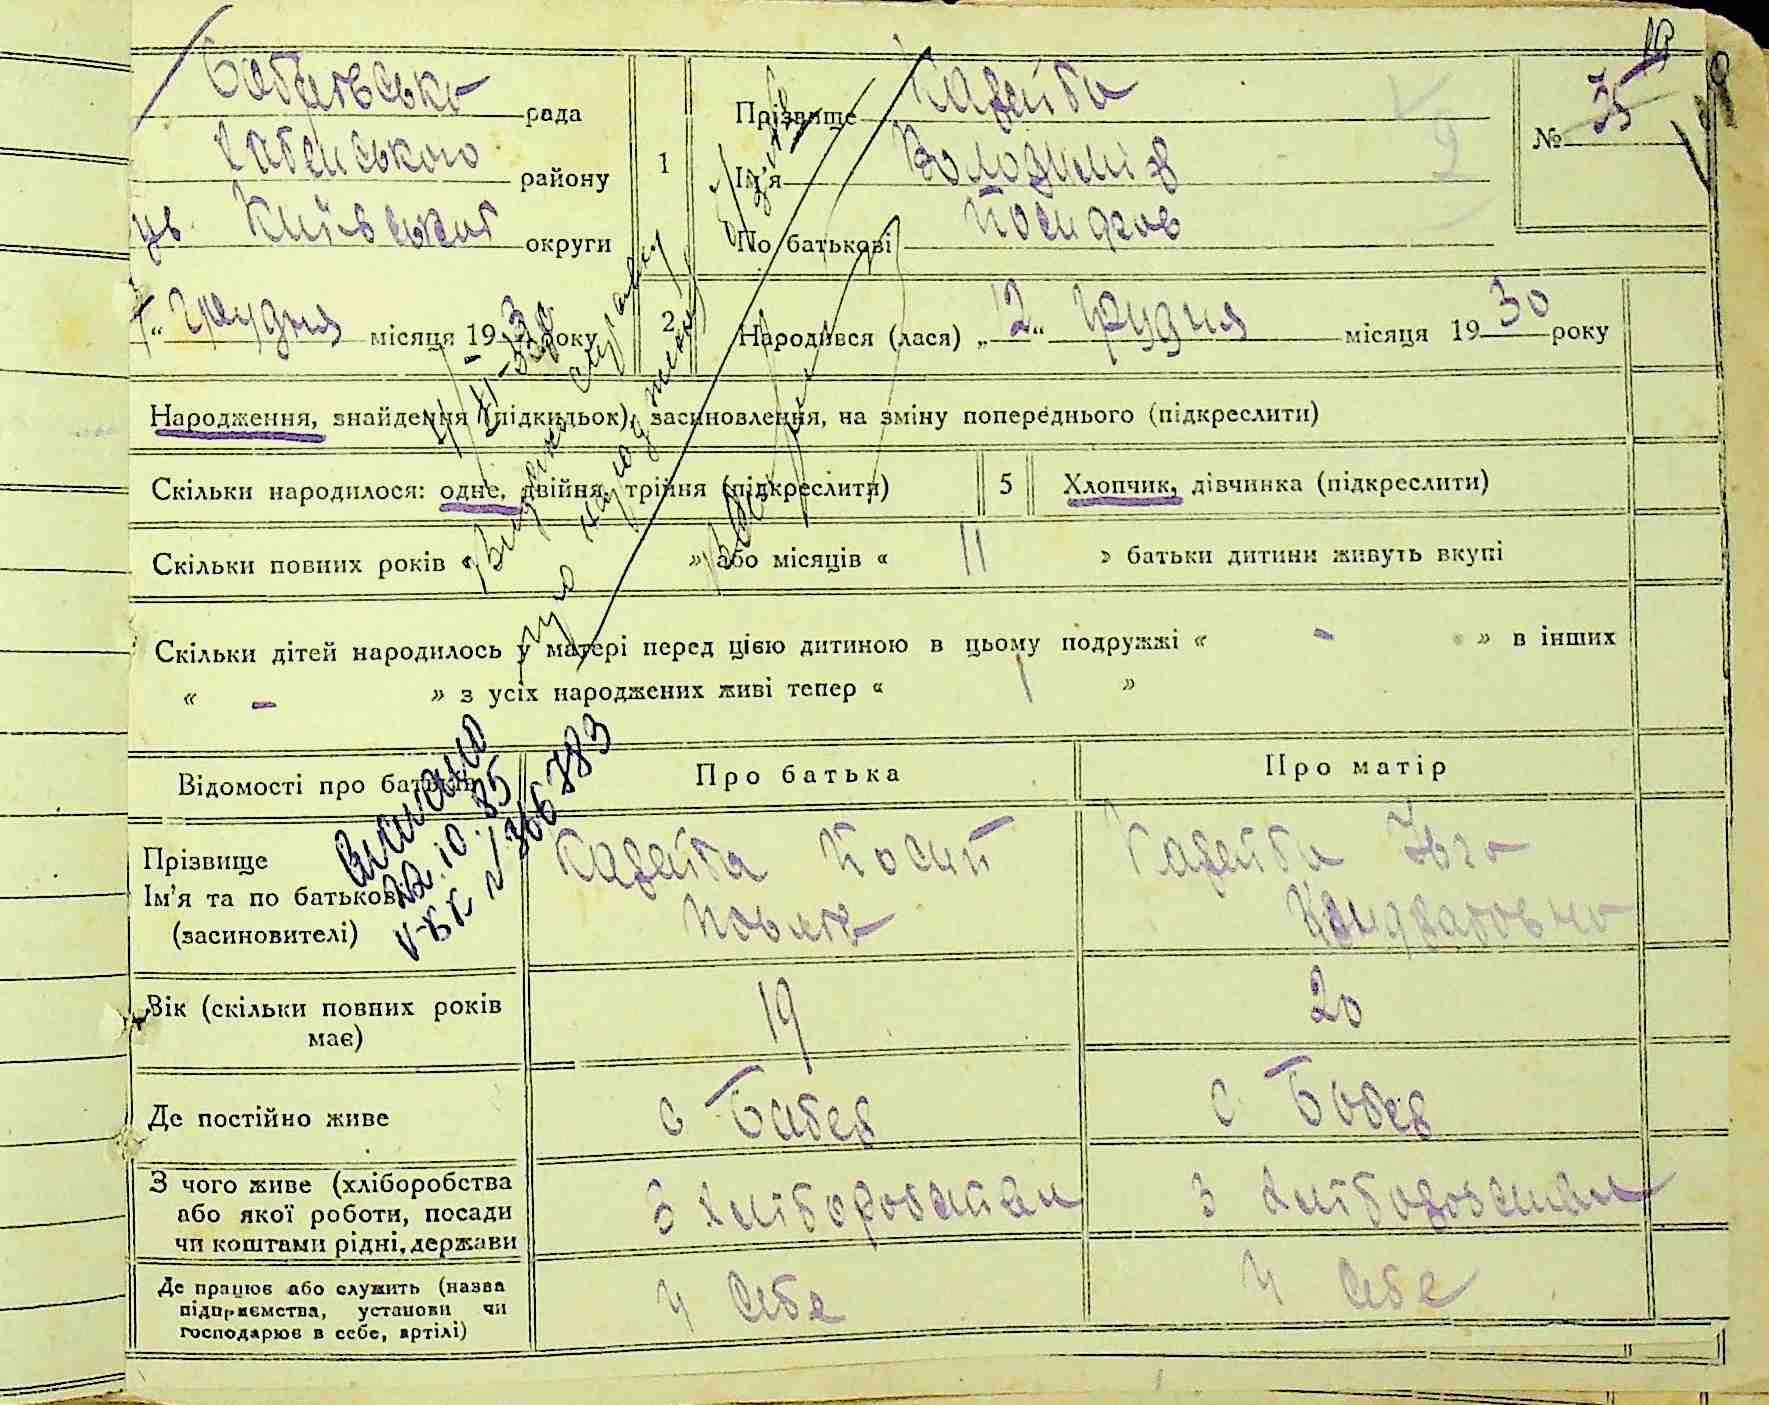 рада
Прізвище Кадейба
№ 35
Хабенського району
1
Ім'я Володимір
Київської округи
По батькові Йосипов
Грудня місяця 1930 року
2
Народився (лася) „2“ Грудня місяця 1930 року
Народження, знайдення (підкидьок), засиновлення, на зміну попереднього (підкреслити)
Скільки народилося: одне, двійня, трійня (підкреслити)
5
Хлопчик, дівчинка (підкреслити)
Скільки повних років « » або місяців « 11 » батьки дитини живуть вкупі
Скільки дітей народилось у матері перед цією дитиною в цьому подружжі « - » в інших
« - » з усіх народжених живі тепер « 1 »
Відомості про батьків
Про батька
Про матір
Прізвище
Ім'я та по батькові
(засиновителі)
Кадейба Йосип
Кадейба Івга
Кондратовна
22.10.85
366783
Вік (скільки повних років
має)
19
20
Де постійно живе
с Бабер
с Бобер
З чого живе (хліборобства
або якої роботи, посади
чи коштами рідні, держави
З хліборобства
З хліборобства
Де працює або служить (назва
підприємства, установи чи
господарює в себе, артілі)
У себе
У себе